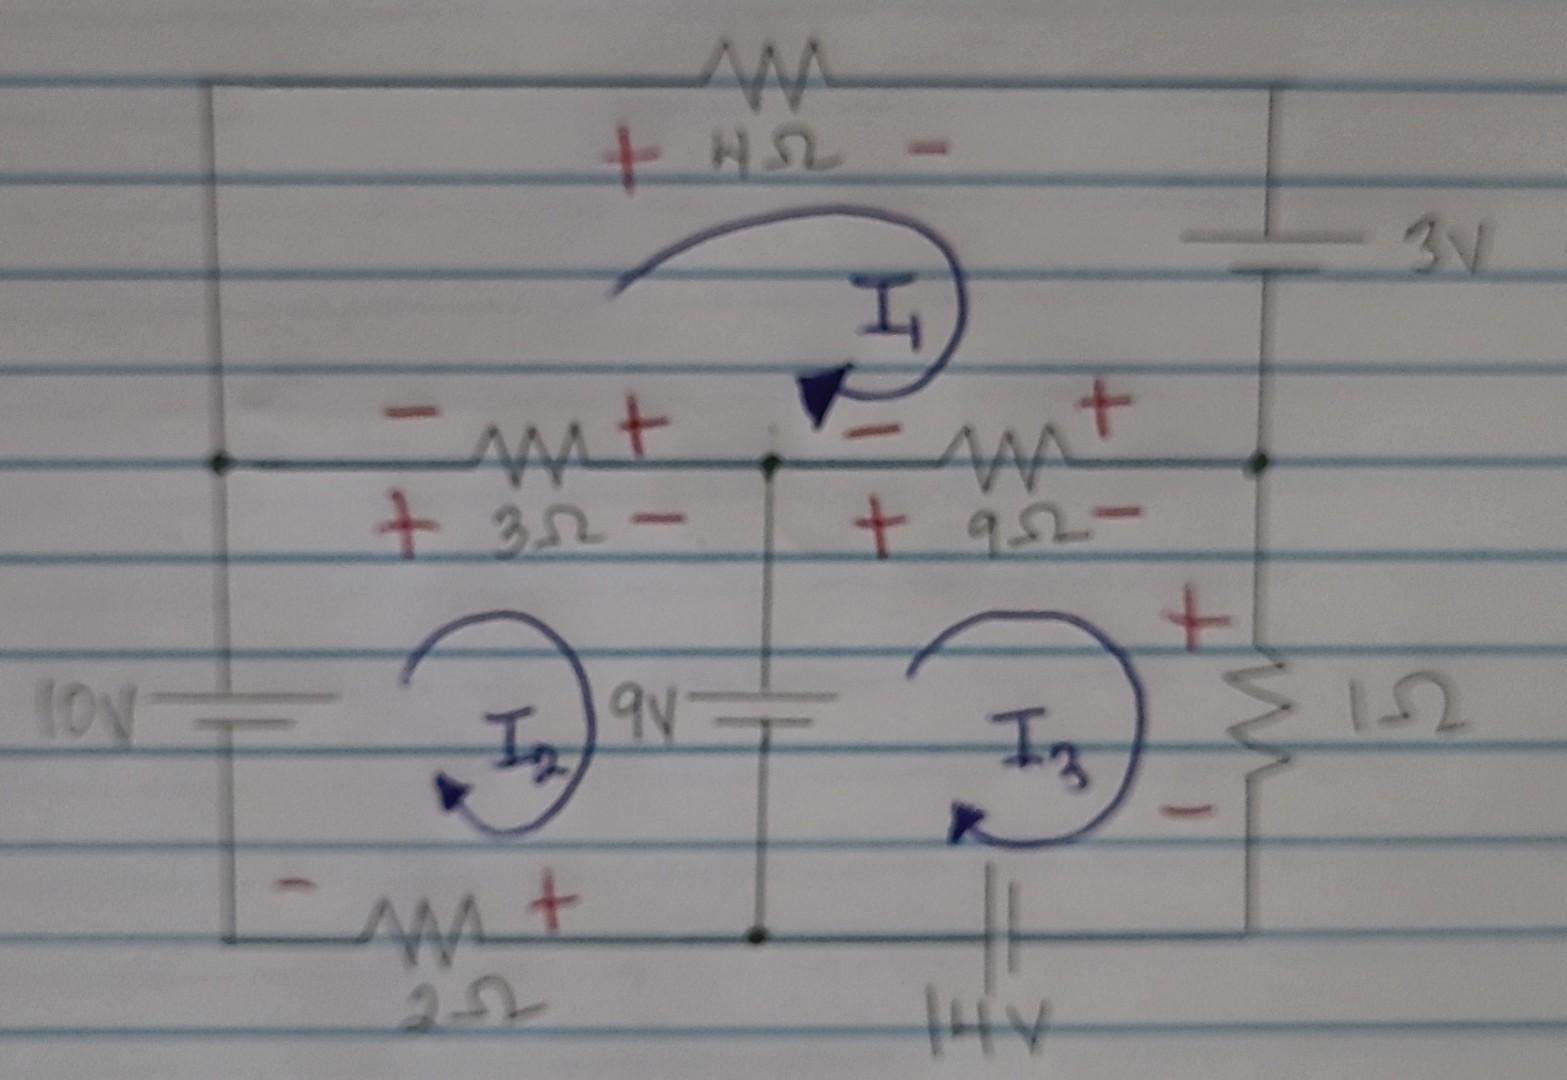 + 4Ω -
3V
I₁
- + - +
+ 3Ω - + 9Ω -
+
10V I₂ 9V I₃ 1Ω
-
- +
2Ω 14V